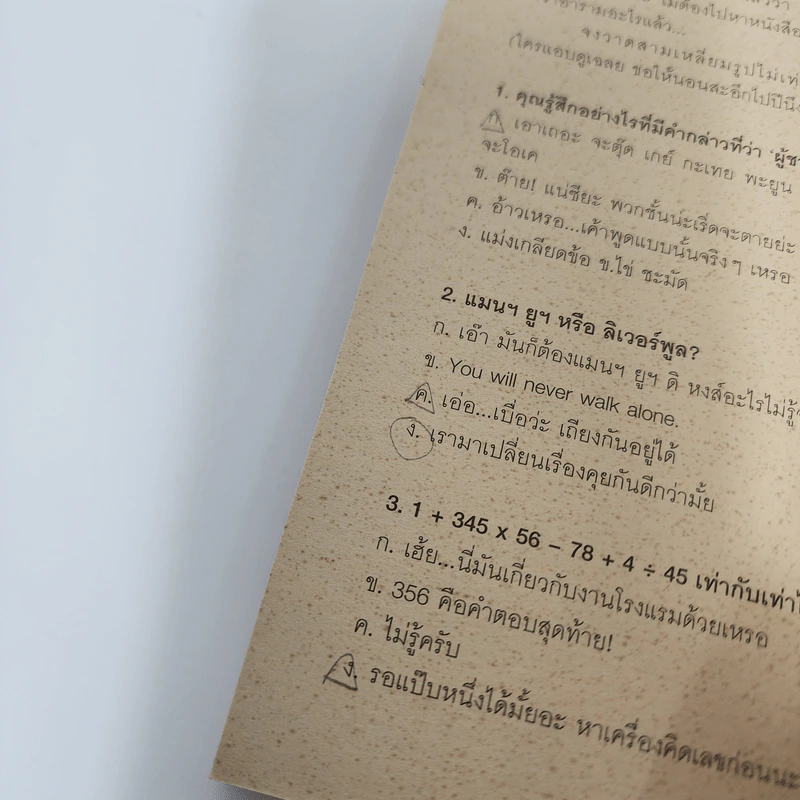 ไม่ต้องไปหาหนังสือ
อะไรแล้ว...
จงวาดสามเหลี่ยมรูปไม่เท่
(ใครแอบดูเฉลย ขอให้นอนสะอึกไปปีนึง
1. คุณรู้สึกอย่างไรที่มีคำกล่าวที่ว่า 'ผู้ชา
ก. เอาเถอะ จะตุ๊ด เกย์ กะเทย พะยูน
จะโอเค
ข. ต๊าย! แน่ซียะ พวกชั้นน่ะเริ่ดจะตายย่ะ
ค. อ้าวเหรอ...เค้าพูดแบบนั้นจริงๆ เหรอ
ง. แม่งเกลียดข้อ ข.ไข่ ชะมัด
2. แมนฯ ยูฯ หรือ ลิเวอร์พูล?
ก. เอ๊า มันก็ต้องแมนฯ ยูฯ ดิ หงส์อะไรไม่รู้
ข. You will never walk alone.
ค. เอ่อ...เบื่อว่ะ เถียงกันอยู่ได้
ง. เรามาเปลี่ยนเรื่องคุยกันดีกว่ามั้ย
3. 1 + 345 x 56 – 78 + 4 ÷ 45 เท่ากับเท่าไ
ก. เฮ้ย...นี่มันเกี่ยวกับงานโรงแรมด้วยเหรอ
ข. 356 คือคำตอบสุดท้าย!
ค. ไม่รู้ครับ
ง. รอแป๊บหนึ่งได้มั้ยอะ หาเครื่องคิดเลขก่อนนะ